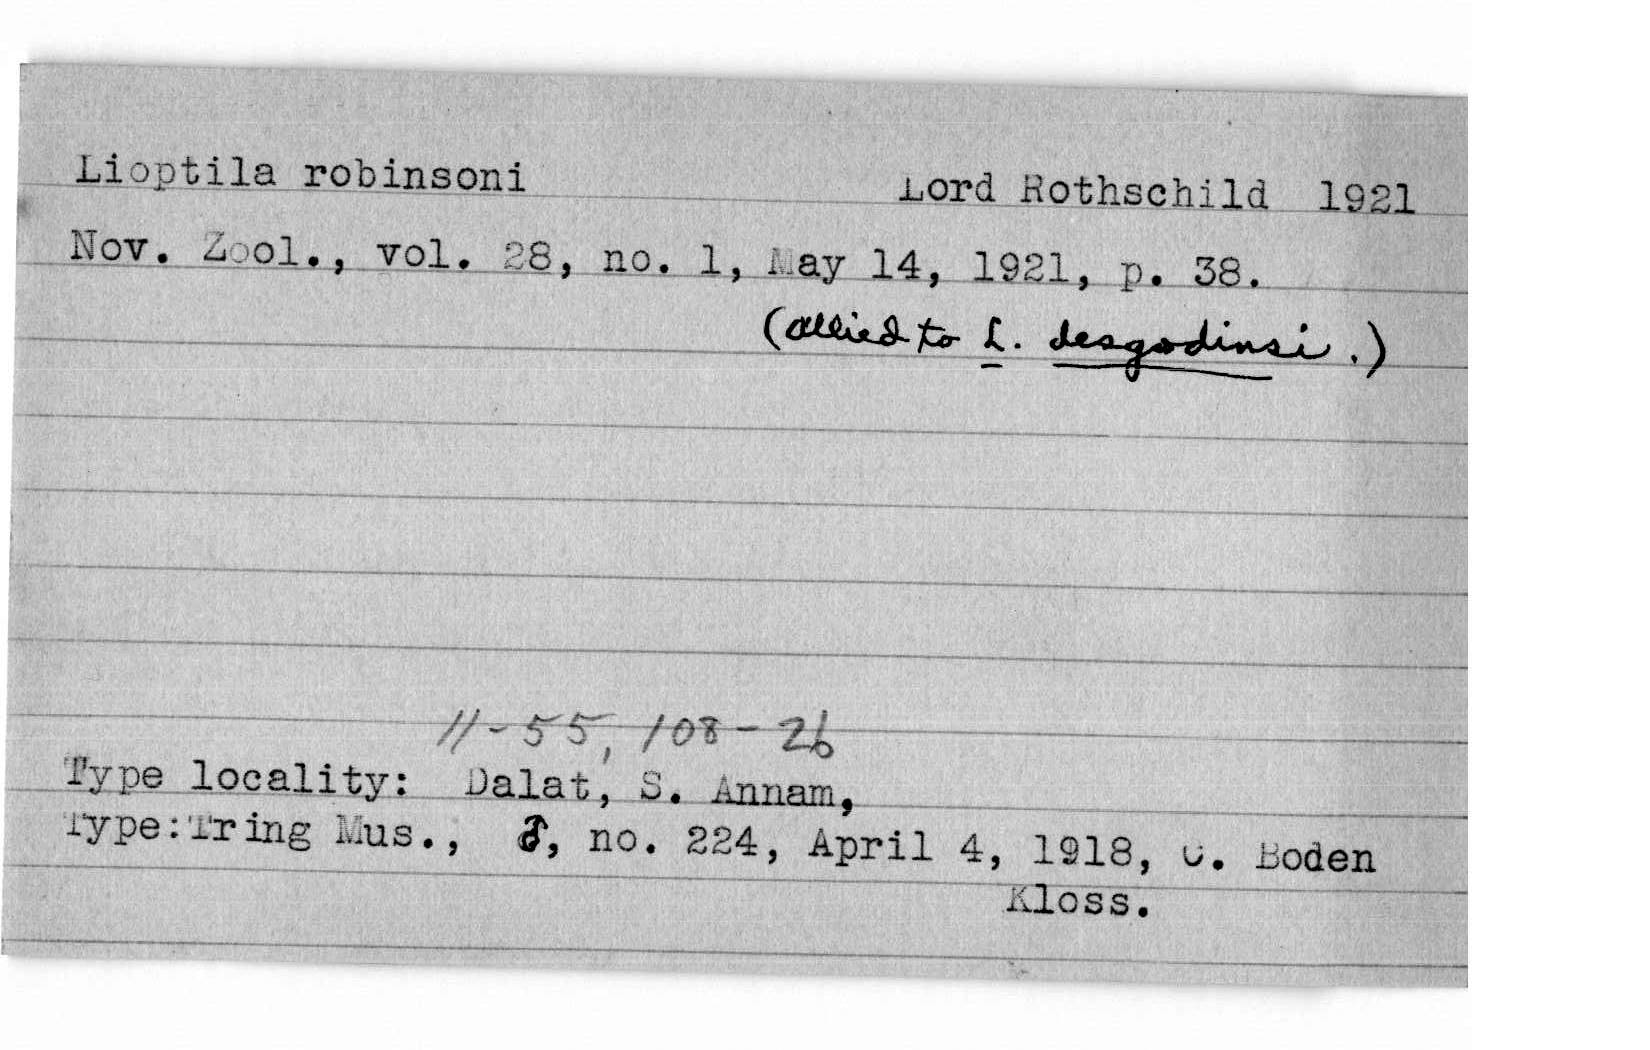 Lioptila robinsoni Lord Rothschild 1921
Nov. Zool., vol. 28, no. 1, May 14, 1921, p. 38.
(allied to L. desgodinsi.)
11-55, 108-26
Type locality: Dalat, S. Annam,
Type:Tring Mus., ♂, no. 224, April 4, 1918, C. Boden
Kloss.